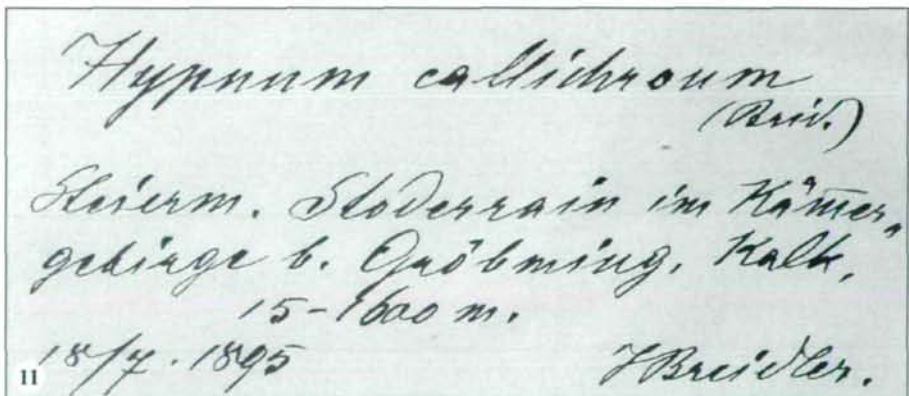 Hypnum callichroum
(Brid.)
Steierm. Stoderrain im Kam̄er„
gebirge b. Gröbming. Kalk,
15-1600 m.
18/7. 1895 JBreidler.
11